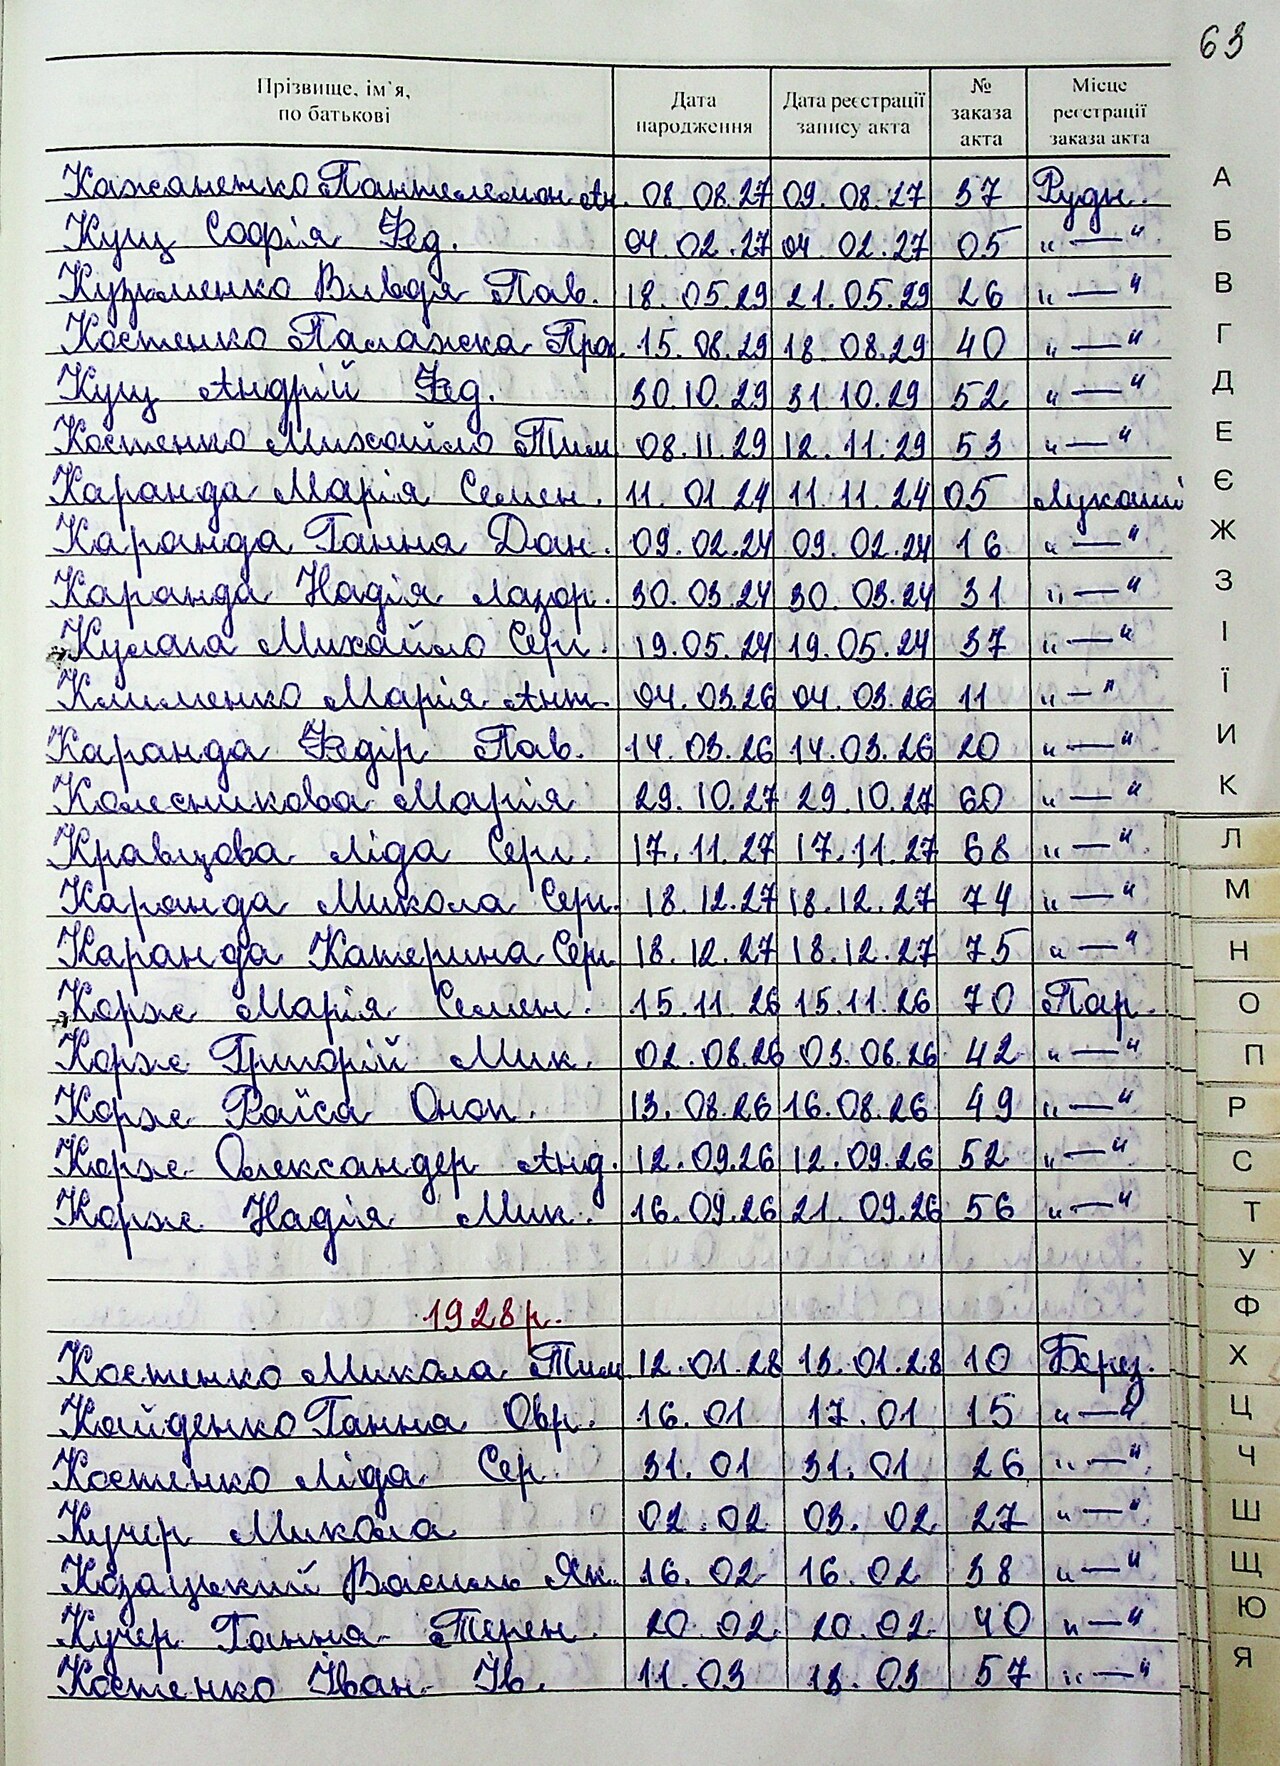 63
Прізвище, ім'я, по батькові Дата народження Дата реєстрації запису акта № заказа акта Місце реєстрації заказа акта
Кажаненко Пантелемон Ан. 08.08.27 09.08.27 37 Рудн.
Кущ Софія Фед. 04.02.27 04.02.27 05 „—"
Кузьменко Вивдя Пав. 18.05.29 21.05.29 26 „—"
Костенко Палажка Про. 15.08.29 18.08.29 40 „—"
Кущ Андрій Фед. 30.10.29 31.10.29 52 „—"
Костенко Михайло Тим. 08.11.29 12.11.29 53 „—"
Каранда Марія Семен. 11.01.24 11.11.24 05 Лукаші
Каранда Ганна Дан. 09.02.24 09.02.24 16 „—"
Каранда Надія Лазор. 30.03.24 30.03.24 31 „—"
Кулага Михайло Серг. 19.05.24 19.05.24 37 „—"
Клименко Марія Ант. 04.03.26 04.03.26 11 „—"
Каранда Федір Пав. 14.03.26 14.03.26 20 „—"
Колеснікова Марія 29.10.27 29.10.27 60 „—"
Кравцова Ліда Серг. 17.11.27 17.11.27 68 „—"
Каранда Микола Серг. 18.12.27 18.12.27 74 „—"
Каранда Катерина Серг. 18.12.27 18.12.27 75 „—"
Корж Марія Семен. 15.11.26 15.11.26 70 Пар.
Корж Григорій Мик. 02.08.26 03.08.26 42 „—"
Корж Раїса Оноп. 13.08.26 16.08.26 49 „—"
Корж Олександер Анд. 12.09.26 12.09.26 52 „—"
Корж Надія Мик. 16.09.26 21.09.26 56 „—"
1928 р.
Костенко Микола Тим. 12.01.28 13.01.28 10 Берез.
Кайденко Ганна Овр. 16.01 17.01 15 „—"
Костенко Ліда Сер. 31.01 31.01 26 „—"
Кучер Микола 02.02 03.02 27 „—"
Козацький Василь Як. 16.02 16.02 38 „—"
Кучер Ганна Терен. 20.02 20.02 40 „—"
Костенко Іван Ів. 11.03 13.03 57 „—"
А
Б
В
Г
Д
Е
Є
Ж
З
І
Ї
И
К
Л
М
Н
О
П
Р
С
Т
У
Ф
Х
Ц
Ч
Ш
Щ
Ю
Я